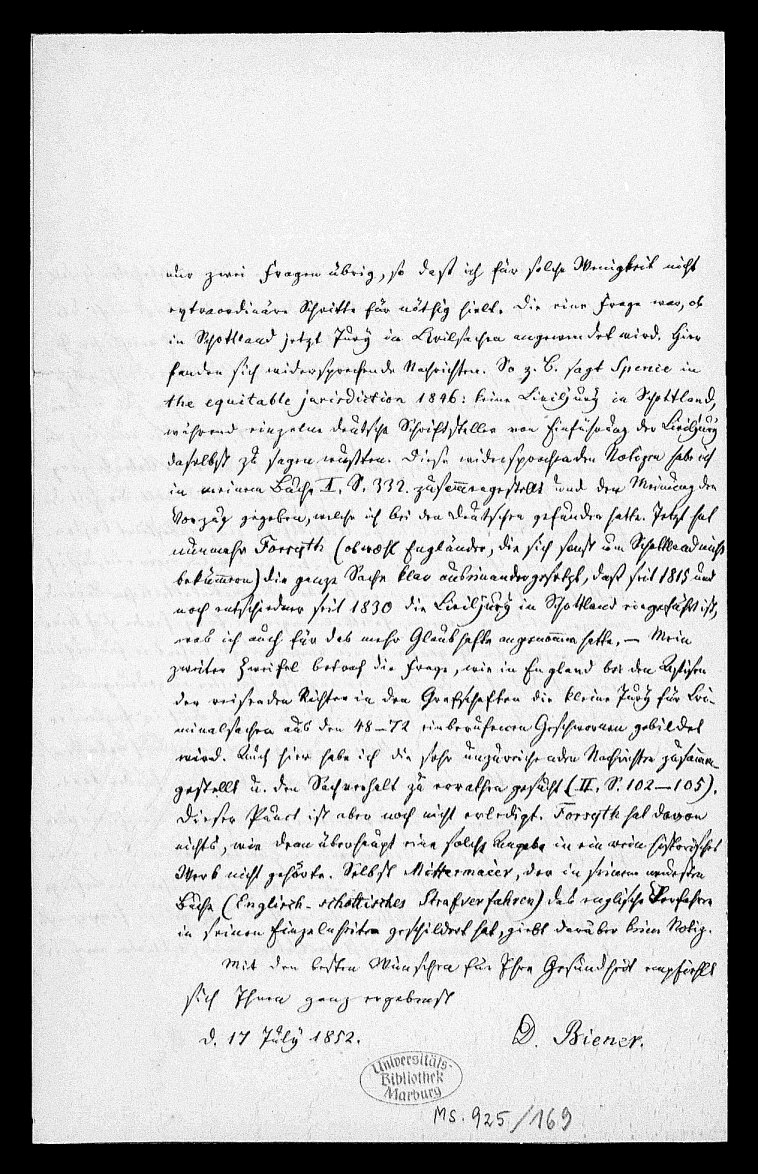 nur zwei Fragen übrig, so daß ich für solche Wenigkeit nicht
extraordinäre Schritte für nöthig hielt. Die eine Frage war, ob
in Schottland jetzt Jury in Civilsachen angewendet wird. Hier
fanden sich widersprechende Nachrichten. So z. B. sagt Spence in
the equitable jurisdiction 1846: keine Civiljury in Schottland,
während einzelne deutsche Schriftsteller von Einführung der Civiljury
daselbst zu sagen wußten. Diese widersprechenden Notizen habe ich
in meinem Buche I, S. 332. zusam̅engestellt und der Meinung den
Vorzug gegeben, welche ich bei den Deutschen gefunden hatte. Jetzt hat
nunmehr Forsyth (obwohl Engländer, die sich sonst um Schottland nicht
bekümmern) die ganze Sache klar auseinandergesetzt, daß seit 1815 und
noch entschiedner seit 1830 die Civiljury in Schottland eingeführt ist,
was ich auch für das mehr Glaubhafte angenom̅en hatte. — Mein
zweiter Zweifel betraf die Frage, wie in England bei den Assisen
der reisenden Richter in den Grafschaften die kleine Jury für Cri-
minalsachen aus den 48–72 einberufenen Geschwornen gebildet
wird. Auch hier habe ich die sehr unzureichenden Nachrichten zusam̅en-
gestellt u. den Sachverhalt zu errathen gesucht (II, S. 102–105).
Dieser Punct ist aber noch nicht erledigt. Forsyth hat davon
nichts, wie denn überhaupt eine solche Angabe in ein rein historisches
Werk nicht gehörte. Selbst Mittermaier, der in seinem neuesten
Buche (Englisch-schottisches Strafverfahren) das englische Verfahren
in seinen Einzelnheiten geschildert hat, giebt darüber keine Notiz.
Mit den besten Wünschen für Ihre Gesundheit empfiehlt
sich Ihnen ganz ergebenst
d. 17 July 1852. D. Biener.
Universitäts-
Bibliothek
Marburg
Ms. 925/169